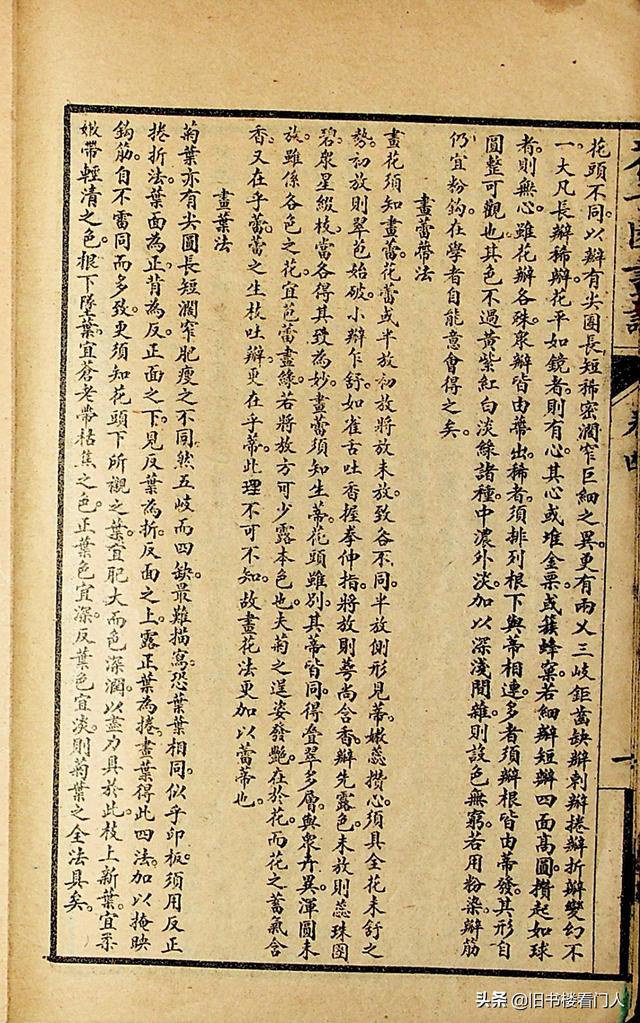 花頭不同。以瓣有尖團長短稀密濶窄巨細之異。更有兩乂三岐鉅齒缺瓣刺瓣捲瓣折瓣變幻不
一。大凡長瓣稀瓣花平如鏡者。則有心。其心或堆金粟。或簇蜂窠。若細瓣短瓣四面高圓。攢起如球
者。則無心。雖花瓣各殊。衆瓣皆由蒂出。稀者須排列根下與蒂相連。多者須瓣根皆由蒂發。其形自
圓整可觀也。其色不過黃紫紅白淡綠諸種。中濃外淡。加以深淺間雜。則設色無窮。若用粉染瓣筋
仍宜粉鈎。在學者自能意會得之矣。
畫蕾蒂法
畫花須知畫蕾。花蕾或半放初放將放未放致各不同。半放側形見蒂。嫩蕊攢心。須具全花未舒之
勢。初放則翠苞始破。小瓣乍舒。如雀舌吐香。握拳伸指。將放則萼尚含香。瓣先露色。未放則蕊珠團
碧。衆星綴枝。當各得其致為妙。畫蕾須知生蒂。花頭雖別。其蒂皆同。得疊翠多層。與衆卉異。渾圓未
放。雖係各色之花。宜苞蕾盡綠。若將放方可少露本色也。夫菊之逞姿發艷。在於花。而花之蓄氣含
香。又在乎蕾。蕾之生枝吐瓣。更在乎蒂。此理不可不知。故畫花法更加以蕾蒂也。
畫葉法
菊葉亦有尖圓長短濶窄肥瘦之不同。然五岐而四缺。最難描寫。恐葉葉相同。似乎印板。須用反正
捲折法。葉面為正。背為反。正面之下見反葉為折。反面之上露正葉為捲。畫葉得此四法。加以掩映
鈎筋。自不雷同而多致。更須知花頭下所襯之葉。宜肥大而色深潤。以盡力具於此。枝上新葉。宜柔
嫩帶輕清之色。根下墜葉。宜蒼老帶枯焦之色。正葉色宜深。反葉色宜淡。則菊葉之全法具矣。
卷四
头条 @旧书楼看门人